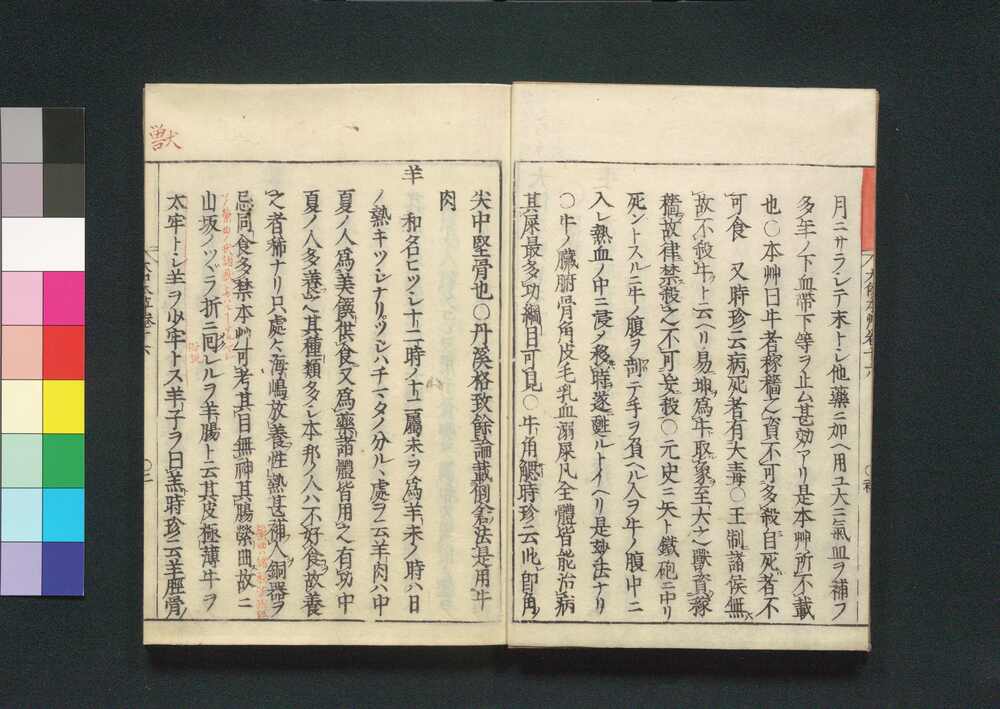 月ニサラシテ末トシ他藥ニ加ヘ用ユ大ニ氣血ヲ補フ
多年ノ下血帶下等ヲ止ム甚効アリ是本艸所不載
也○本艸曰牛者稼穡之資不可多殺自死者不
可食 又時珍云病死者有大毒○王制諸侯無
故不殺牛ト云ヘリ易坤爲牛取象至大之獸資稼
穡故律禁殺之不可妄殺○元史ニ矢ト鐵砲ニ中リ
死ントスルニ牛ノ腹ヲ剖テ手ヲ負ヘル人ヲ牛ノ腹中ニ
入レ熱血ノ中ニ浸ノ移時遂甦ルトイヘリ是妙法ナリ
○牛ノ臟腑骨角皮毛乳血溺屎凡全體皆能治病
其屎最多功綱目可見○牛角䚡時珍云此即角
尖中堅骨也○丹溪格致餘論載倒倉法是用牛
肉
羊
和名ヒツシ十二時ノ十二屬未ヲ爲羊未ノ時ハ日
ノ熱キツシナリツシハチマタノ分ルヽ處ヲ云羊肉ハ中
夏ノ人爲美饌供食又爲藥諸體皆用之有功中
夏ノ人多養之其種類多シ本邦ノ人ハ不好食故養
之者稀ナリ只處々海嶋放養性熱甚補人銅器ヲ
忌同食多禁本艸可考其目無神其腸縈曲故ニ
山坂ノツヾラ折ニ囘レルヲ羊腸ト云其皮極薄牛ヲ
太牢トシ羊ヲ少牢トス羊子ヲ曰羔時珍云羊脛骨
獸